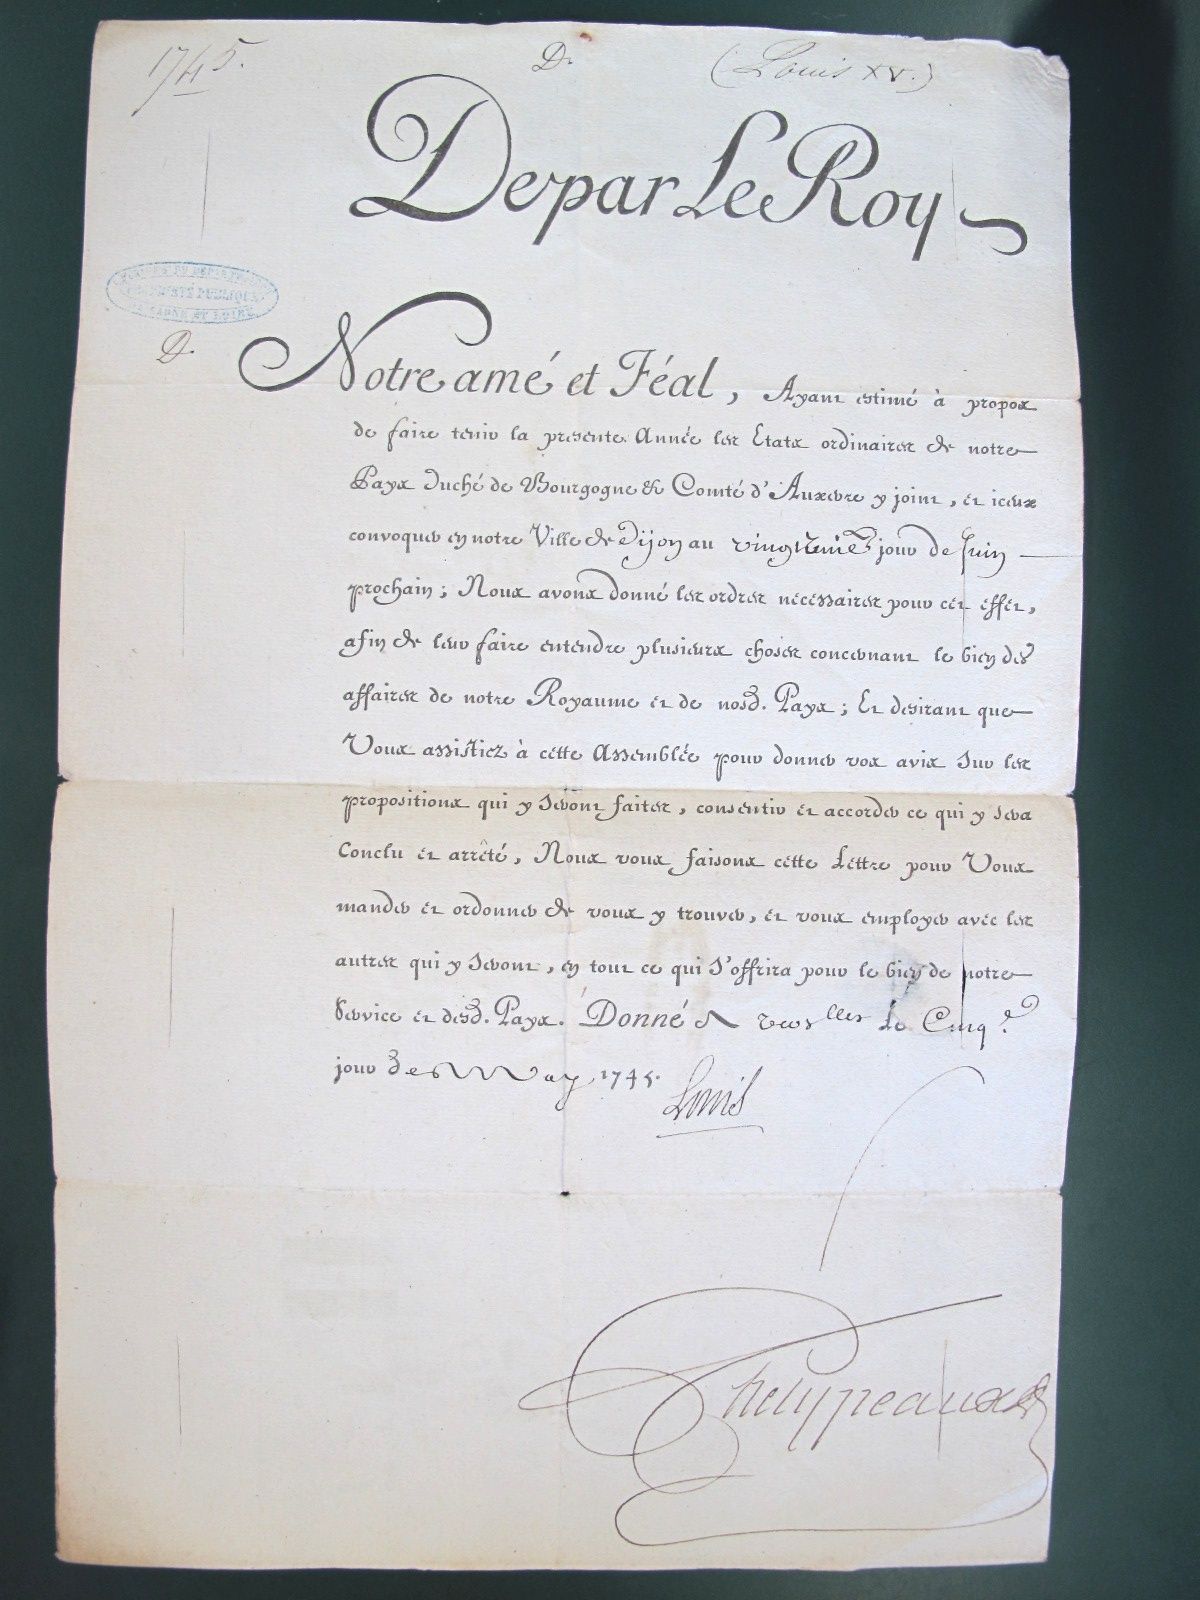 1745.
D.
(Louis XV.)
De par Le Roy
PUBLIQUE
ET LOIRE
D.
Notre amé et Féal, Ayant estimé à propos
de faire tenir la presente Année les Etats ordinaires de notre
Pays Duché de Bourgogne & Comté d'Auxerre y joint, et iceux
convoquer en notre Ville de Dijon au vingtième jour de Juin
prochain; Nous avons donné les ordres nécéssaires pour cet effet,
afin de leur faire entendre plusieurs choses concernant le bien des
affaires de notre Royaume et de nosd. Pays; Et desirant que
Vous assistiez à cette Assemblée pour donner vos avis sur les
propositions qui y seront faites, consentir et accorder ce qui y sera
Conclu et arrêté, Nous vous faisons cette Lettre pour Vous
mander et ordonner de vous y trouver, et vous employer avec les
autres qui y seront, en tout ce qui s'offrira pour le bien de notre
Service et desd. Pays. Donné à Verslles le Cinq.e
jour de May 1745.
Louis
Phelypeaux